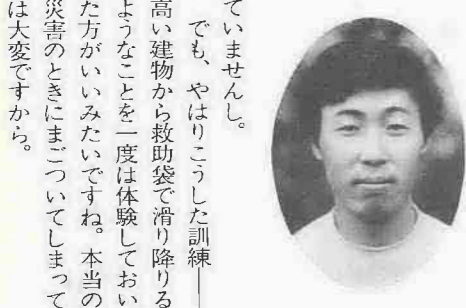 ていませんし。
でも、やはりこうした訓練――
高い建物から救助袋で滑り降りる
ようなことを一度は体験しておい
た方がいいみたいですね。本当の
災害のときにまごついてしまって
は大変ですから。